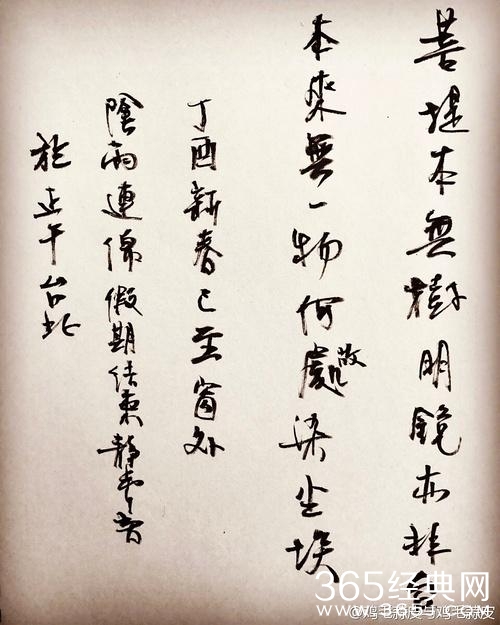 菩堤本無樹明鏡亦非台
本來無一物何處染尘埃
丁酉新春已至窗外
陰雨連綿假期结束靜
於正午台北
365经典网
WWW.365J.COM
@鸡毛蒜皮与鸡毛蒜皮